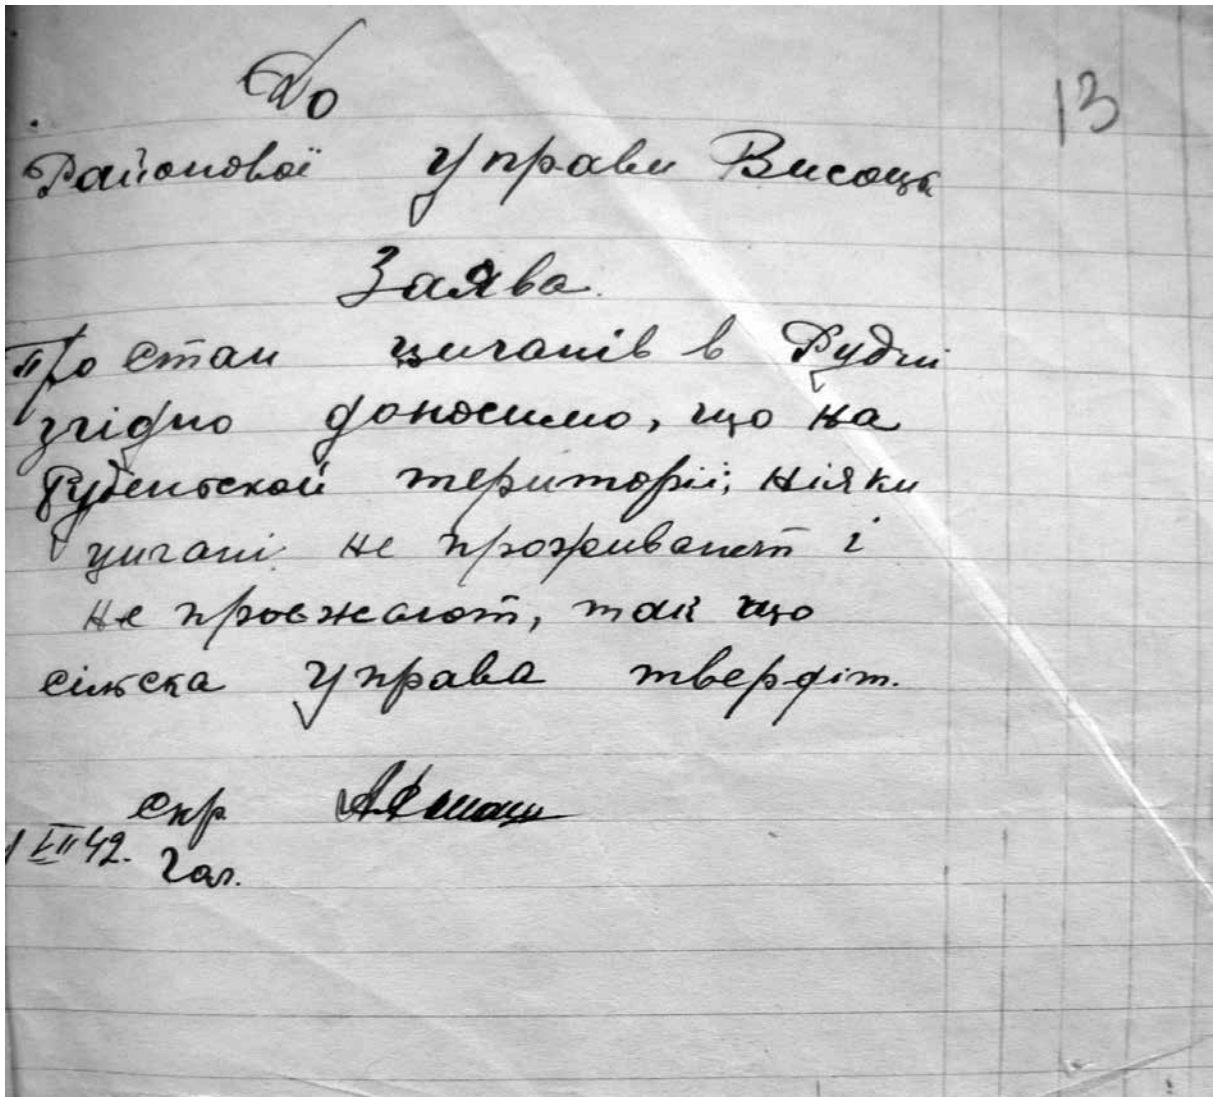 До
13
Районової Управи Висоцк
Заява.
Про стан циганів в Рудні
згідно доносимо, що на
Руденьской територіі; ніяки
цигані не проживают і
не проежают, так що
сільска Управа твердіт.
скр
1 VII 42.
Гол.